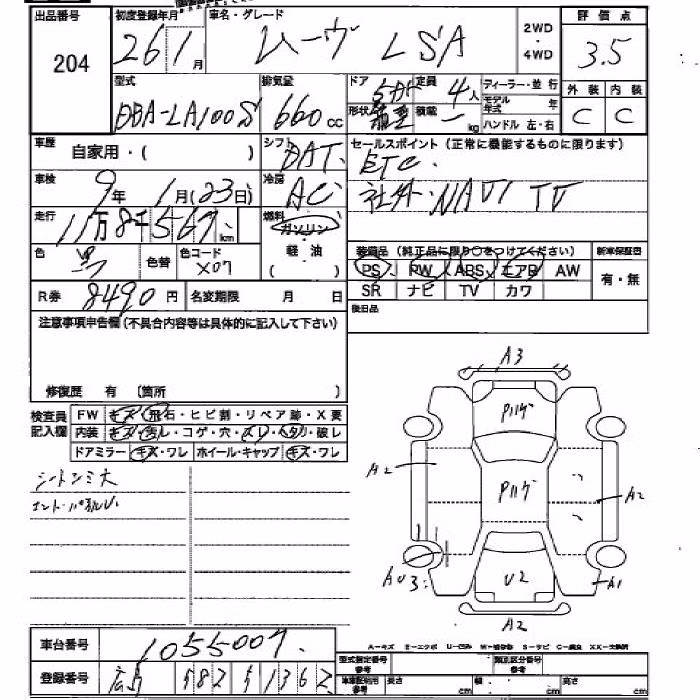 出品番号 初度登録年月 車名・グレード 評価点
204 26 1月 ムーヴ LSA 2WD・4WD 3.5
型式 排気量 ドア 定員 4人 ディーラー・並行 外装 内装
DBA-LA100S 660cc 形状 積載 kg モデル年式 年 C C
ハンドル 左・右
車歴 自家用・( ) シフト DAT セールスポイント (正常に機能するものに限ります)
車検 9年 1月(23日) 冷房 AC ETC.
社外・NAVI TV
走行 11万8千567km 燃料 ガソリン
軽・油
( )
色 黒 色替 色コード X07
装備品 (純正品に限り○をつけてください) 新車保証書
PS PW ABS エアB AW 有・無
SR ナビ TV カワ
R券 8490円 名変期限 月 日 後日品
注意事項申告欄(不具合内容等は具体的に記入して下さい)
修復歴 有 〔箇所 〕
検査員記入欄 FW キズ・飛石・ヒビ割・リペア跡・X要
内装 キズ・汚レ・コゲ・穴・スレ・ヘタリ・破レ
ドアミラー キズ・ワレ ホイール・キャップ キズ・ワレ
シートシミ大
A3
Pハゲ
A2 Pハゲ A2
AU3 U2 A1
A2
A-キズ E-エクボ U-凹み S-サビ C-腐食 XX-交換済
車台番号 1055007
登録番号 広島 582 1362
型式指定番号 参考 類別区分番号 参考
長さ cm 幅 cm 高さ cm